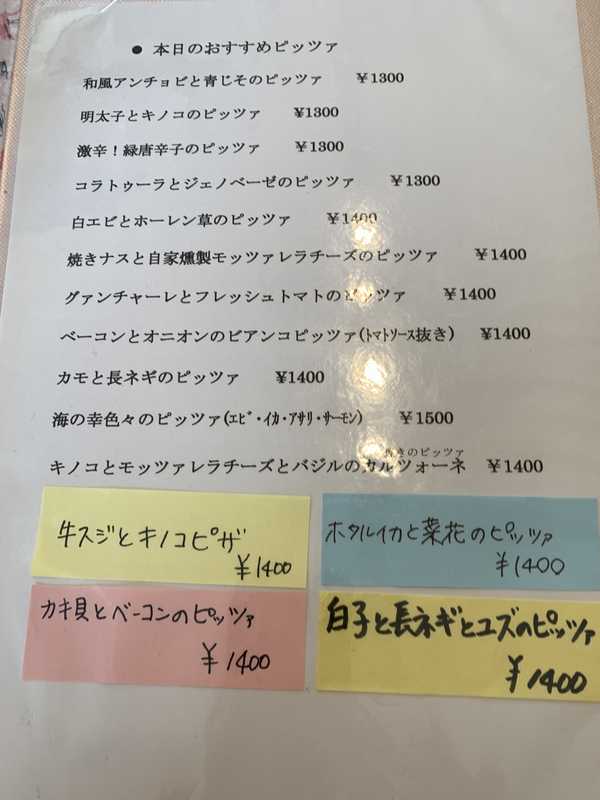 ● 本日のおすすめピッツァ
和風アンチョビと青じそのピッツァ ¥1300
明太子とキノコのピッツァ ¥1300
激辛！緑唐辛子のピッツァ ¥1300
コラトゥーラとジェノベーゼのピッツァ ¥1300
白エビとホーレン草のピッツァ ¥1400
焼きナスと自家燻製モッツァレラチーズのピッツァ ¥1400
グァンチャーレとフレッシュトマトのピッツァ ¥1400
ベーコンとオニオンのビアンコピッツァ(ﾄﾏﾄｿｰｽ抜き) ¥1400
カモと長ネギのピッツァ ¥1400
海の幸色々のピッツァ(ｴﾋﾞ・ｲｶ・ｱｻﾘ・ｻｰﾓﾝ) ¥1500
きのピッツァ
キノコとモッツァレラチーズとバジルのカルツォーネ ¥1400
牛スジとキノコピザ
¥1400
ホタルイカと菜花のピッツァ
¥1400
カキ貝とベーコンのピッツァ
¥1400
白子と長ネギとユズのピッツァ
¥1400